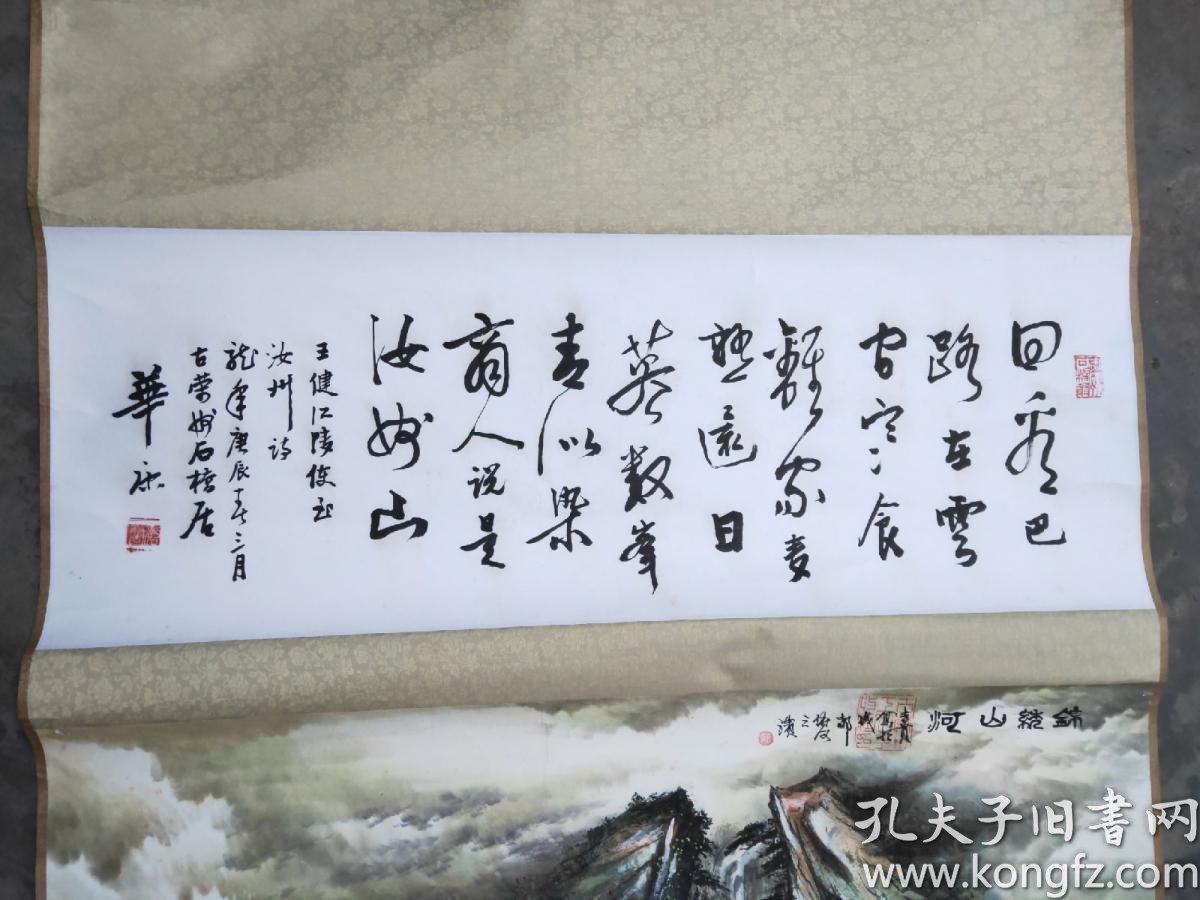 回看巴
路在雲
间寒食
離家麦
熟還日
暮数峯
青似染
商人说是
汝州山
王健江陵使至
汝州诗
龍年庚辰春三月
古州石居
華
錦繡山河
孔夫子旧书网
www.kongfz.com